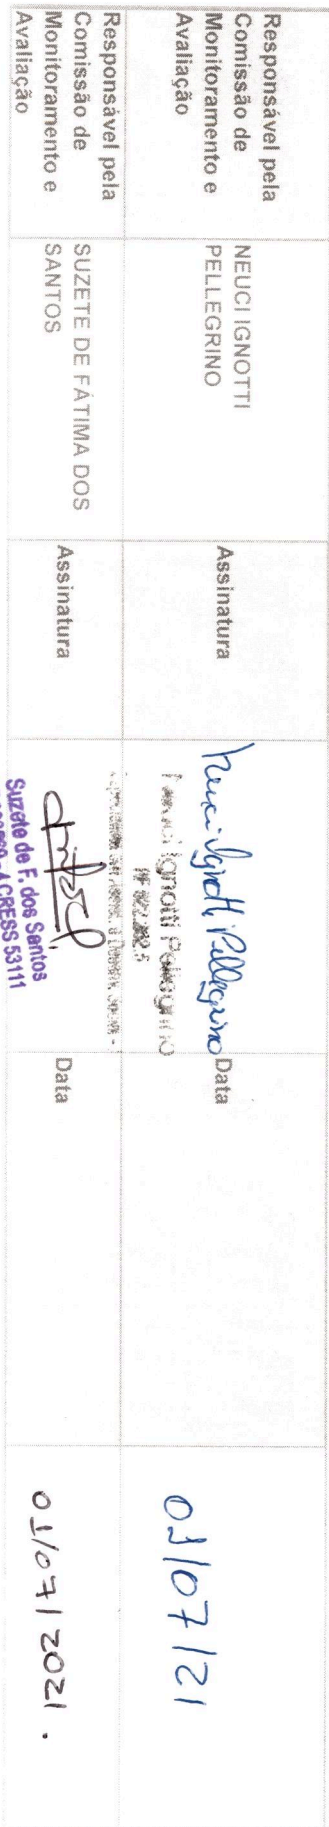 Responsável pela
Comissão de
Monitoramento e
Avaliação
NEUCI IGNOTTI
PELLEGRINO
Assinatura
Neuci Ignotti Pellegrino
Ignotti Pellegrino
Data
01/07/21
Responsável pela
Comissão de
Monitoramento e
Avaliação
SUZETE DE FÁTIMA DOS
SANTOS
Assinatura
Suzete de F. dos Santos
CRESS 53111
Data
01/07/2021.